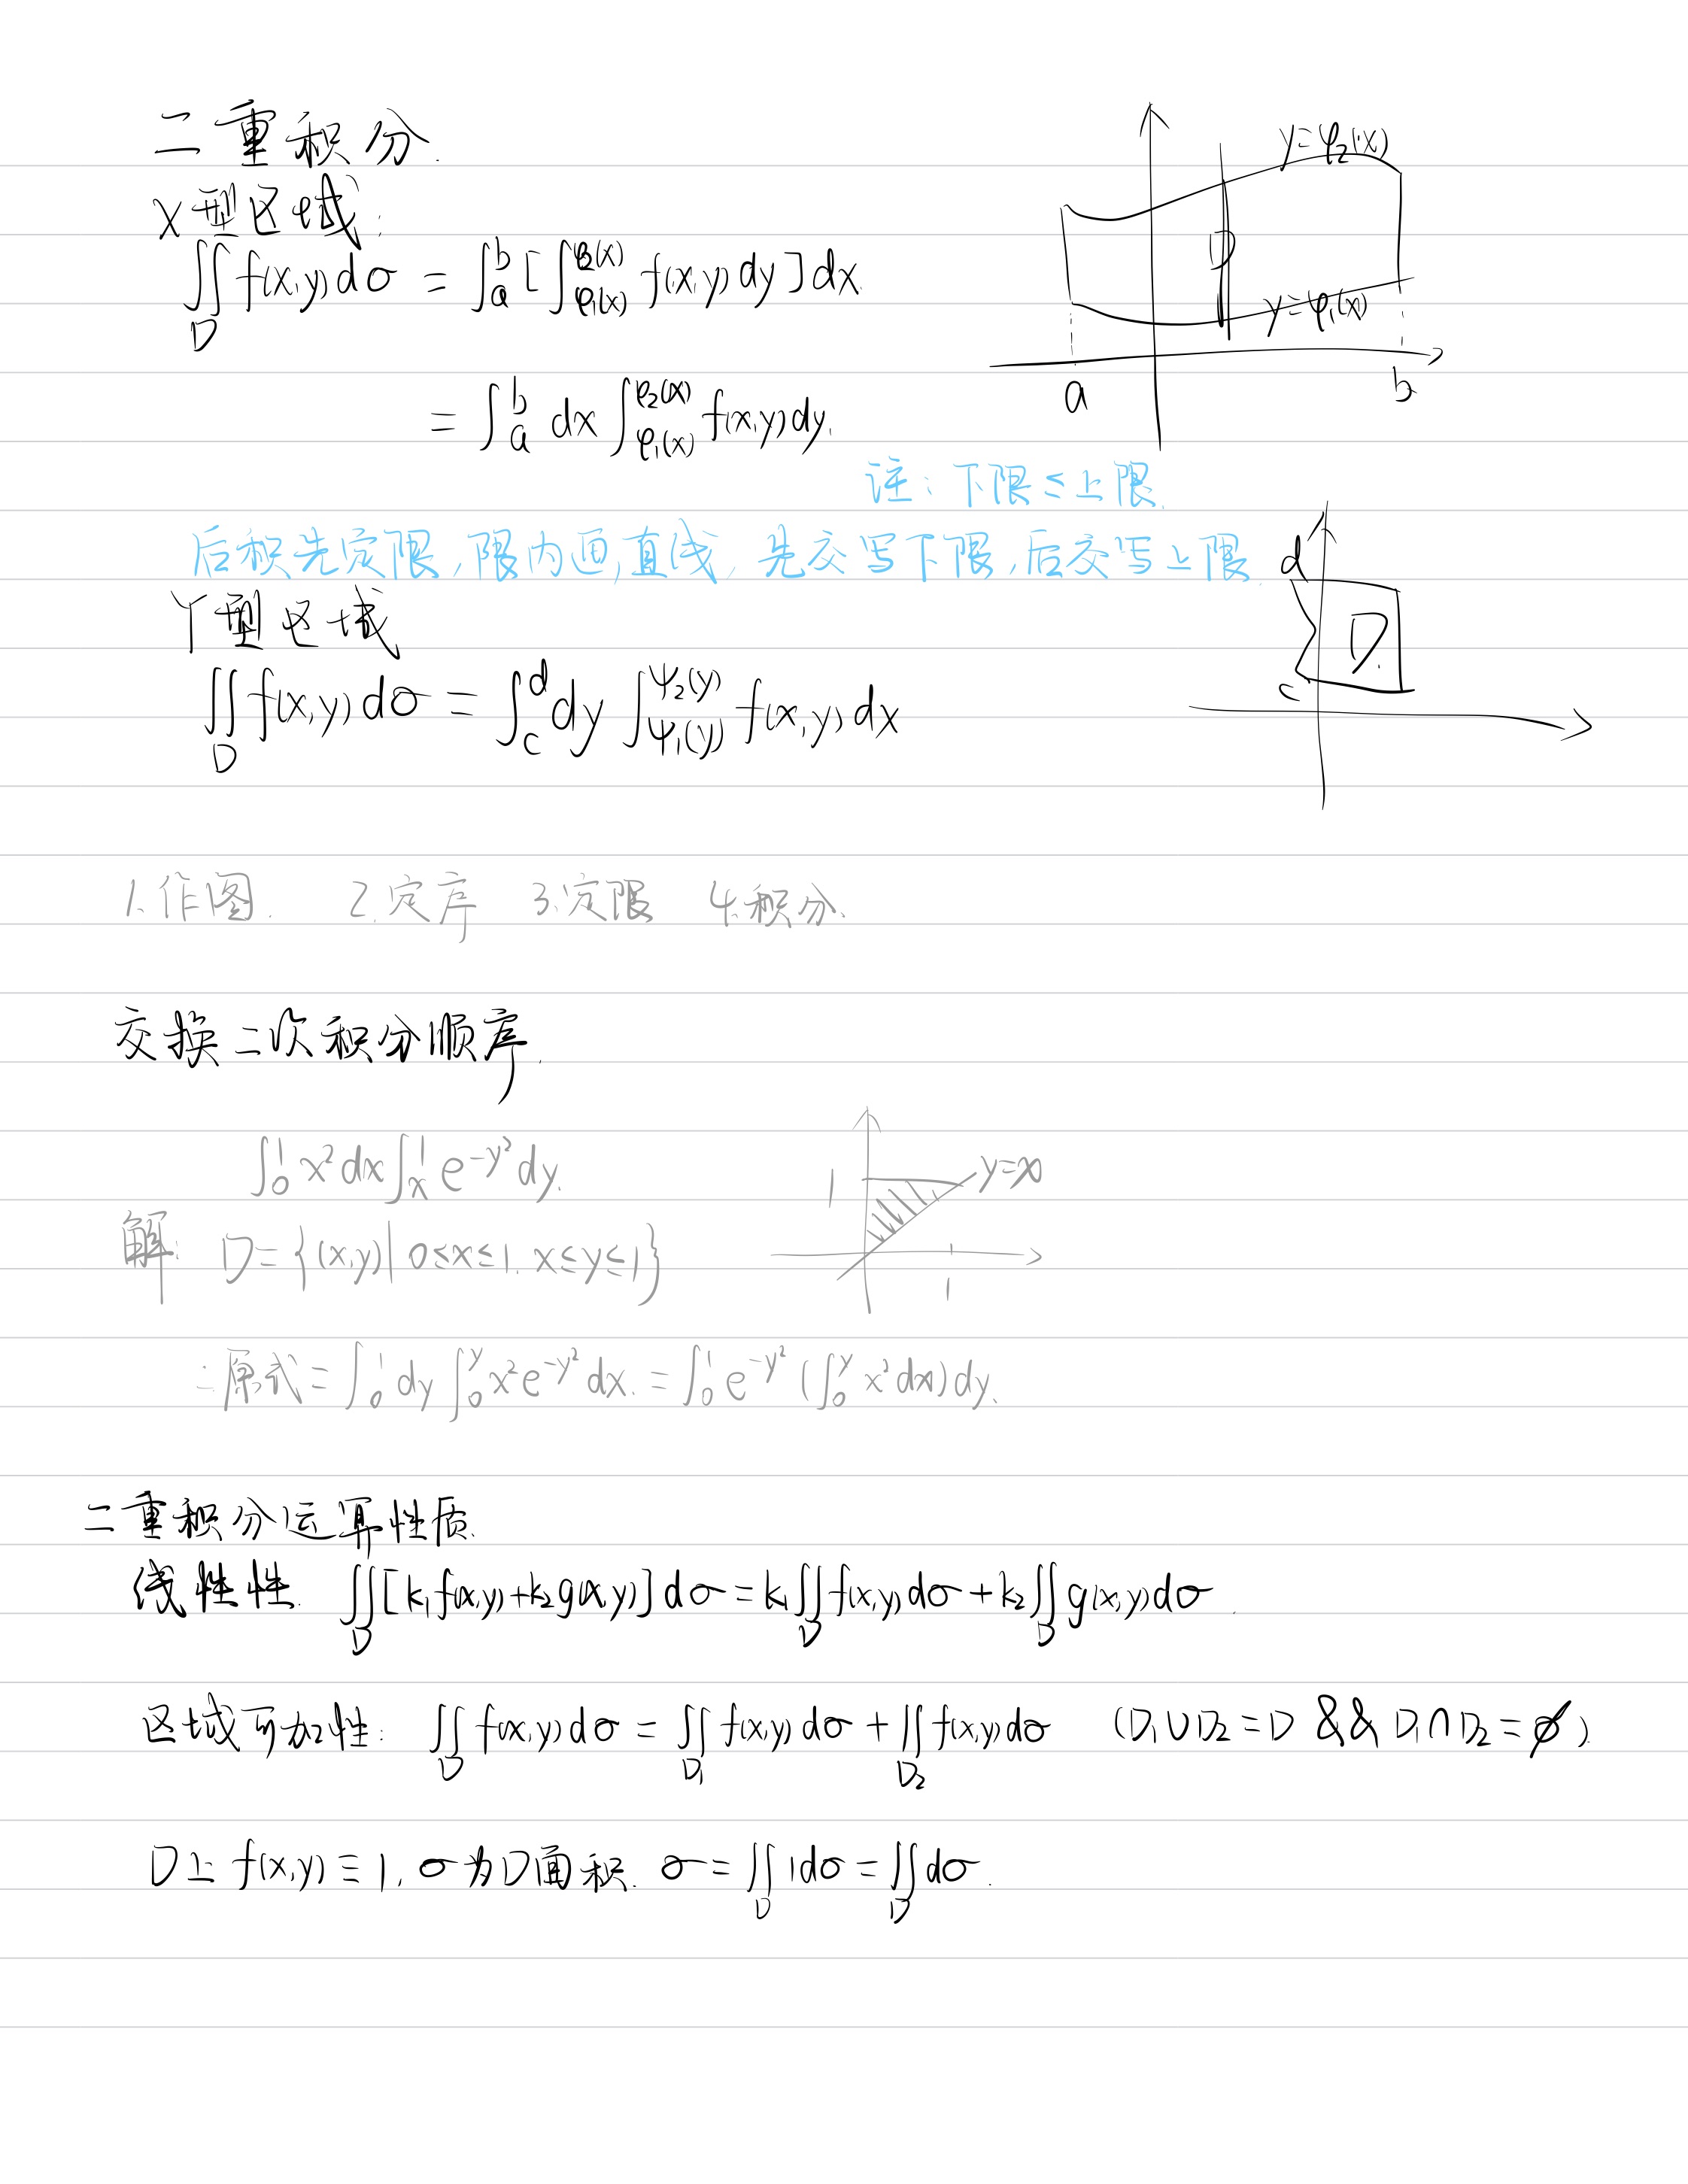 二重积分.
X型区域:
∬_D f(x,y)dσ = ∫_a^b [∫_{φ₁(x)}^{φ₂(x)} f(x,y)dy]dx
= ∫_a^b dx ∫_{φ₁(x)}^{φ₂(x)} f(x,y)dy.
y=φ₂(x)
D
y=φ₁(x)
a b
注: 下限≤上限.
后积先定限,限内画直线,先交写下限,后交写上限.
Y型区域
∬_D f(x,y)dσ = ∫_c^d dy ∫_{ψ₁(y)}^{ψ₂(y)} f(x,y)dx
d
D.
c
1.作图. 2.定序 3.定限 4.积分.
交换二次积分顺序.
∫_0^1 x²dx ∫_x^1 e^{-y²}dy.
1 y=x
1
解: D={(x,y)| 0≤x≤1. x≤y≤1}
∴原式=∫_0^1 dy ∫_0^y x²e^{-y²}dx.=∫_0^1 e^{-y²}(∫_0^y x²dx)dy.
二重积分运算性质.
线性性. ∬_D [k₁f(x,y)+k₂g(x,y)]dσ=k₁∬_D f(x,y)dσ+k₂∬_D g(x,y)dσ.
区域可加性: ∬_D f(x,y)dσ = ∬_{D₁} f(x,y)dσ + ∬_{D₂} f(x,y)dσ (D₁∪D₂=D && D₁∩D₂=∅).
D上 f(x,y)≡1, σ为D面积. σ=∬_D 1dσ=∬_D dσ.